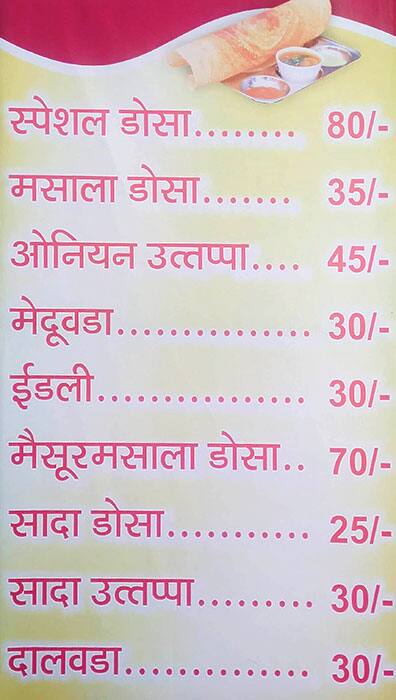 स्पेशल डोसा........ 80/-
मसाला डोसा....... 35/-
ओनियन उत्तप्पा.... 45/-
मेदूवडा............... 30/-
ईडली................ 30/-
मैसूरमसाला डोसा.. 70/-
सादा डोसा........... 25/-
सादा उत्तप्पा......... 30/-
दालवडा.............. 30/-